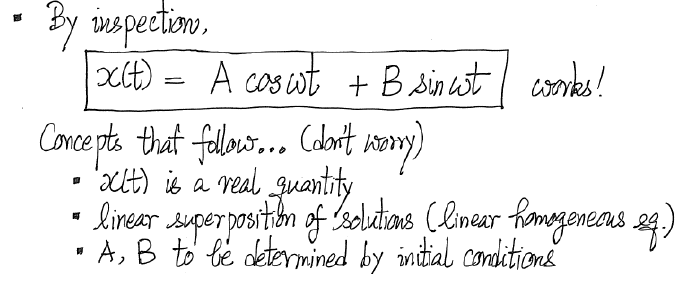 ▪ By inspection,
x(t) = A cos ωt + B sin ωt works!
Concepts that follow... (don't worry)
▪ x(t) is a real quantity
▪ linear superposition of solutions (linear homogeneous eq.)
▪ A, B to be determined by initial conditions